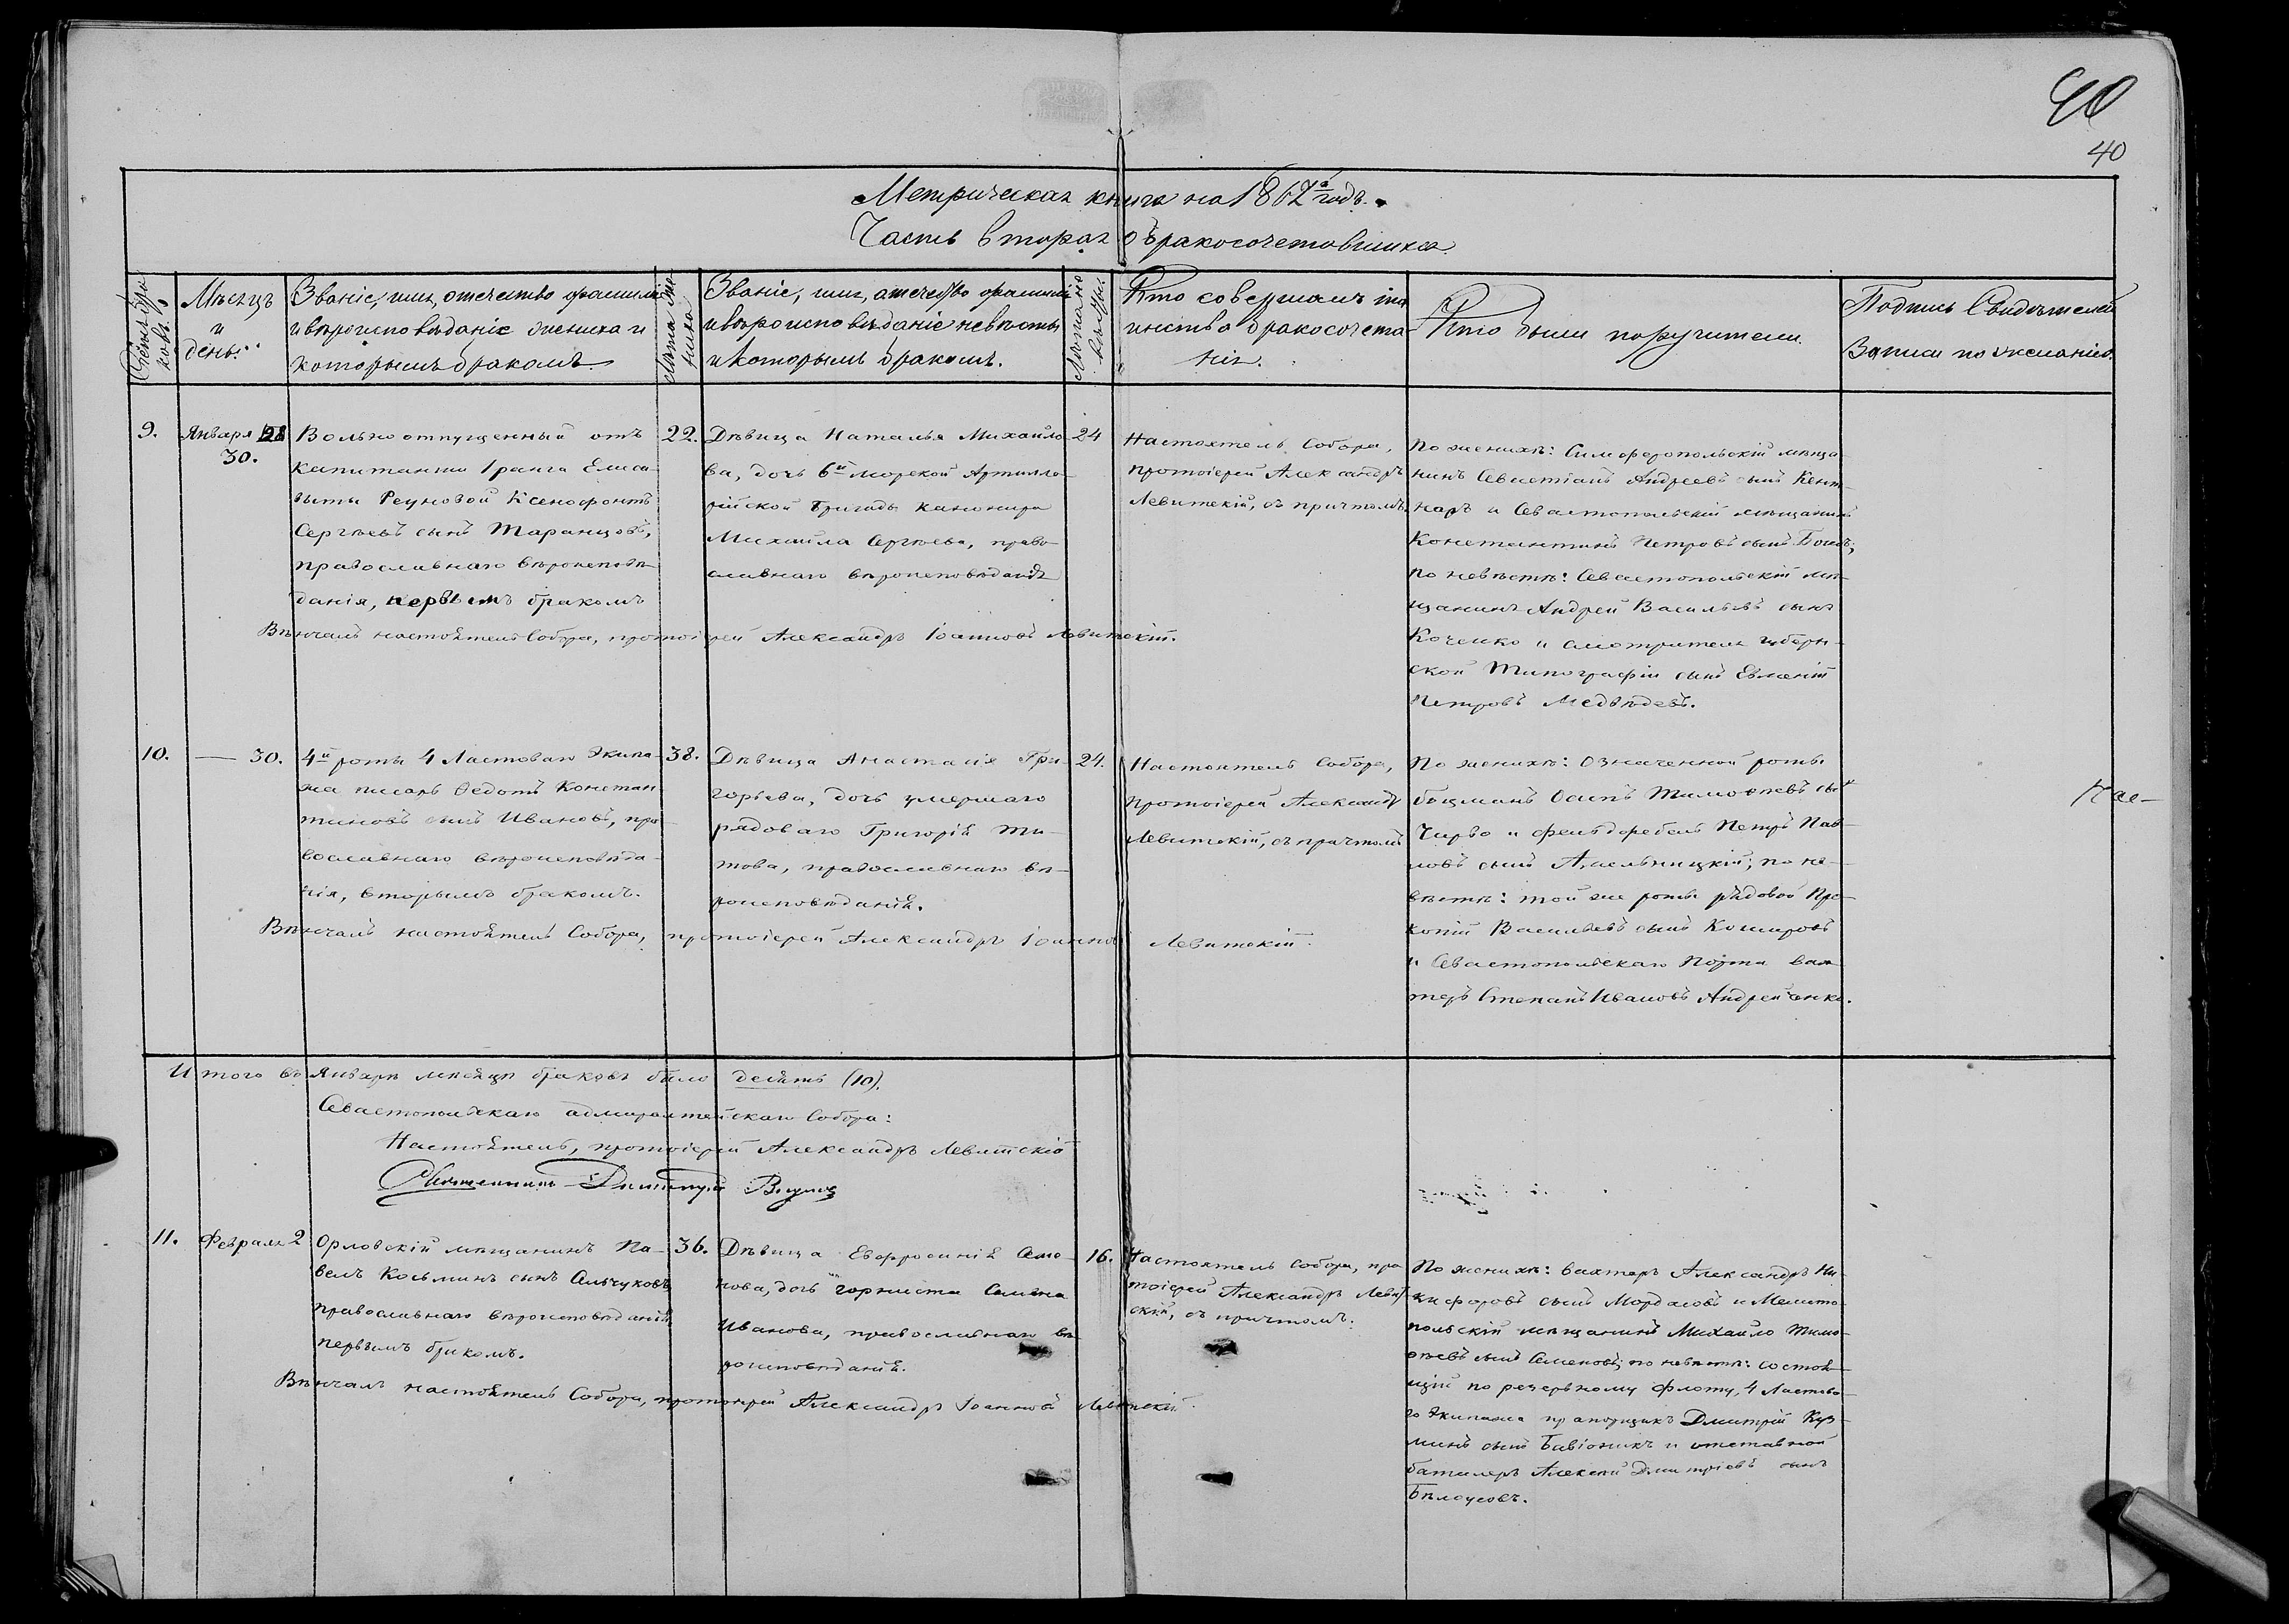 40
40
Метрическая книга на 1862й годъ.
Часть вторая о бракосочетавшихся
Счетъ браковъ.
Мѣсяцъ
и
день.
Званіе, имя, отечество фамилія
и вѣроисповѣданіе жениха и
которымъ бракомъ
Лѣта жениха
Званіе, имя, отечество фамилія
и вѣроисповѣданіе невѣсты
и которымъ бракомъ.
Лѣта невѣсты.
Кто совершалъ та
инство бракосочета
нія.
Кто были поручители
Подпись свидѣтелей
записи по желанію.
9.
Января
30.
Вольноотпущенный отъ
капитанши 1 ранга Елиса-
веты Реуновой Ксенофонтъ
Сергѣевъ сынъ Таранцовъ,
православнаго вѣроисповѣ-
данія, первымъ бракомъ
22.
Дѣвица Наталья Михайло-
ва, дочь 6й морской Артилле-
рійской Бригады канонира
Михаила Сергѣева, право-
славнаго вѣроисповѣданія
24
Настоятель Собора,
протоіерей Александръ
Левитскій, съ причтомъ.
По женихѣ: Симферопольскій мѣща-
нинъ Севастіанъ Андреевъ сынъ
и Севастопольскій мѣщанинъ
Константинъ Петровъ сынъ
по невѣстѣ: Севастопольскій мѣ-
щанинъ Андрей Васильевъ сынъ
Коченко и смотритель губерн-
ской Типографіи сынъ Евменій
Петровъ Медвѣдевъ.
Вѣнчалъ настоятель Собора, протоіерей Александръ Іоанновъ Левитскій.
10.
— 30.
4й роты 4 Ластоваго Экипа-
жа писарь Федотъ Констан-
тиновъ сынъ Ивановъ, пра-
вославнаго вѣроисповѣда-
нія, вторымъ бракомъ.
38.
Дѣвица Анастасія Гри-
горьева, дочь умершаго
рядоваго Григорія Ти-
това, православнаго вѣ-
роисповѣданія.
24.
Настоятель Собора,
протоіерей Александръ
Левитскій, съ причтомъ
По женихѣ: означенной роты
боцманъ Осипъ Тимофеевъ сынъ
Чирво и фельдфебель Петръ Пав-
ловъ сынъ по не-
вѣстѣ: той же роты рядовой Про-
копій Васильевъ сынъ Кошаровъ
и Севастопольскаго Порта вах-
теръ Степанъ Ивановъ Андрейченко.
Вѣнчалъ настоятель Собора, протоіерей Александръ Іоанновъ Левитскій.
Итого въ Январѣ мѣсяцѣ браковъ было десять (10).
Севастопольскаго адмиралтейскаго Собора:
Настоятель, протоіерей Александръ Левитскій
11.
Февраля 2
Орловскій мѣщанинъ Па-
велъ Косьминъ сынъ Сальчуковъ,
православнаго вѣроисповѣданія
первымъ бракомъ.
36.
Дѣвица Евфросинія Семе-
нова, дочь горниста Семена
Иванова, православнаго вѣ-
роисповѣданія.
16.
Настоятель Собора, про
тоіерей Александръ Левит
скій, съ причтомъ.
По женихѣ: вахтеръ Александръ Ни-
кифоровъ сынъ Мордасовъ и Мелито-
польскій мѣщанинъ Михайло Тимо-
фѣевъ сынъ Семеновъ; по невѣстѣ: состоя-
щій по резервному флоту, 4 Ластова-
го Экипажа прапорщикъ Дмитрій Кузь-
минъ сынъ и отставной
баталеръ Алексѣй Дмитріевъ сынъ
Бѣлоусовъ.
Вѣнчалъ настоятель Собора, протоіерей Александръ Іоанновъ Левитскій.